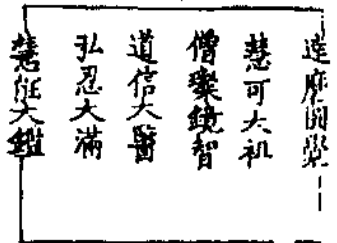 達磨圓覺
慧可大祖
僧璨鏡智
道信大醫
弘忍大滿
慧能大鑑